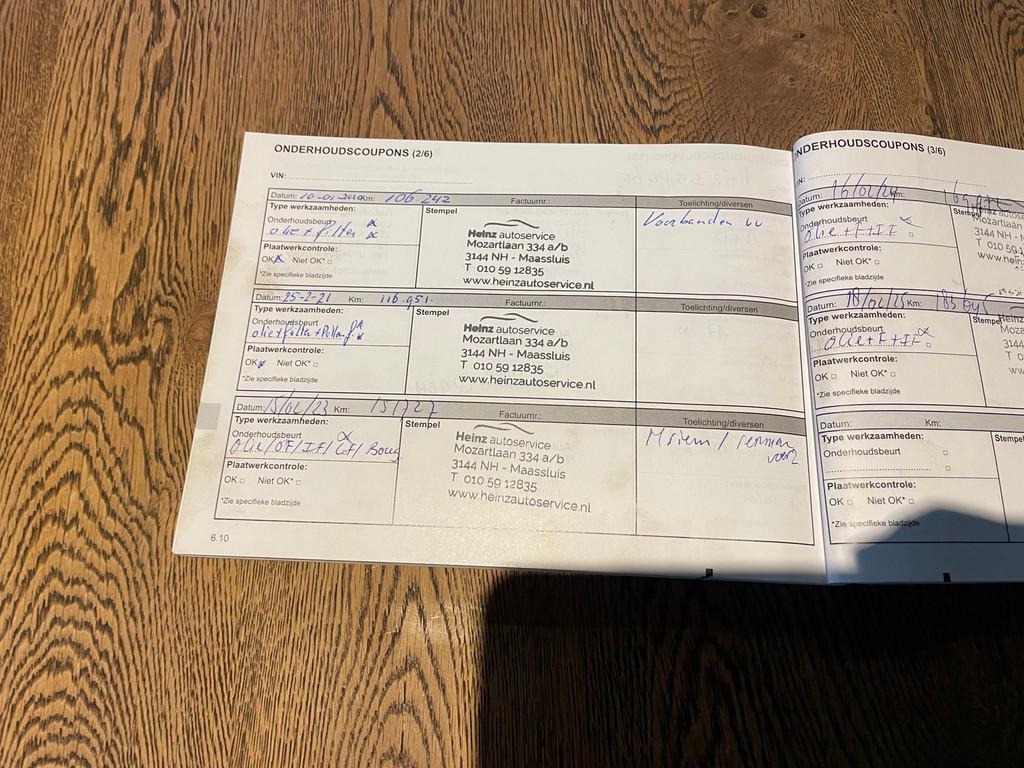 ONDERHOUDSCOUPONS (2/6)
VIN:
Datum: 10-01-2020 Km: 106 242 Factuurnr.: Toelichting/diversen
Type werkzaamheden:
Stempel
Onderhoudsbeurt
olie + filter
Plaatwerkcontrole:
OK Niet OK*
*Zie specifieke bladzijde
Heinz autoservice
Mozartlaan 334 a/b
3144 NH - Maassluis
T 010 59 12835
www.heinzautoservice.nl
Voorbanden vv
Datum: 25-2-21 Km: 116.951. Factuurnr.: Toelichting/diversen
Type werkzaamheden:
Stempel
Onderhoudsbeurt
olie + filter + Pollenf.
Plaatwerkcontrole:
OK Niet OK*
*Zie specifieke bladzijde
Heinz autoservice
Mozartlaan 334 a/b
3144 NH - Maassluis
T 010 59 12835
www.heinzautoservice.nl
Datum: 15/02/23 Km: 151727 Factuurnr.: Toelichting/diversen
Type werkzaamheden:
Stempel
Onderhoudsbeurt
Olie/OF/IF/
Plaatwerkcontrole:
OK Niet OK*
*Zie specifieke bladzijde
Heinz autoservice
Mozartlaan 334 a/b
3144 NH - Maassluis
T 010 59 12835
www.heinzautoservice.nl
6.10
ONDERHOUDSCOUPONS (3/6)
Datum: 16/02/24 Km:
Type werkzaamheden:
Onderhoudsbeurt
Olie+F+IF
Plaatwerkcontrole:
OK Niet OK*
*Zie specifieke bladzijde
3144 NH
T 010 59
Datum: 18/02/25 Km: 185645
Type werkzaamheden:
Onderhoudsbeurt
Olie+F+IF
Plaatwerkcontrole:
OK Niet OK*
*Zie specifieke bladzijde
Datum: Km:
Type werkzaamheden:
Stempel
Onderhoudsbeurt
Plaatwerkcontrole:
OK Niet OK*
*Zie specifieke bladzijde